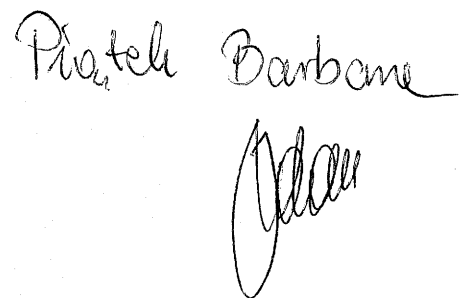 Piątek Barbara